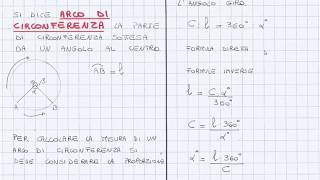 SI DICE ARCO DI
CIRCONFERENZA LA PARTE
DI CIRCONFERENZA SOTTESA
DA UN ANGOLO AL CENTRO.
AB = l
α°
A
B
PER CALCOLARE LA MISURA DI UN
ARCO DI CIRCONFERENZA SI
DEVE CONSIDERARE LA PROPORZIONE
L'ANGOLO GIRO.
C : l = 360° : α°
FORMULA DIRETTA
FORMULE INVERSE
l = C · α° / 360°
C = l · 360° / α°
α° = l · 360° / C